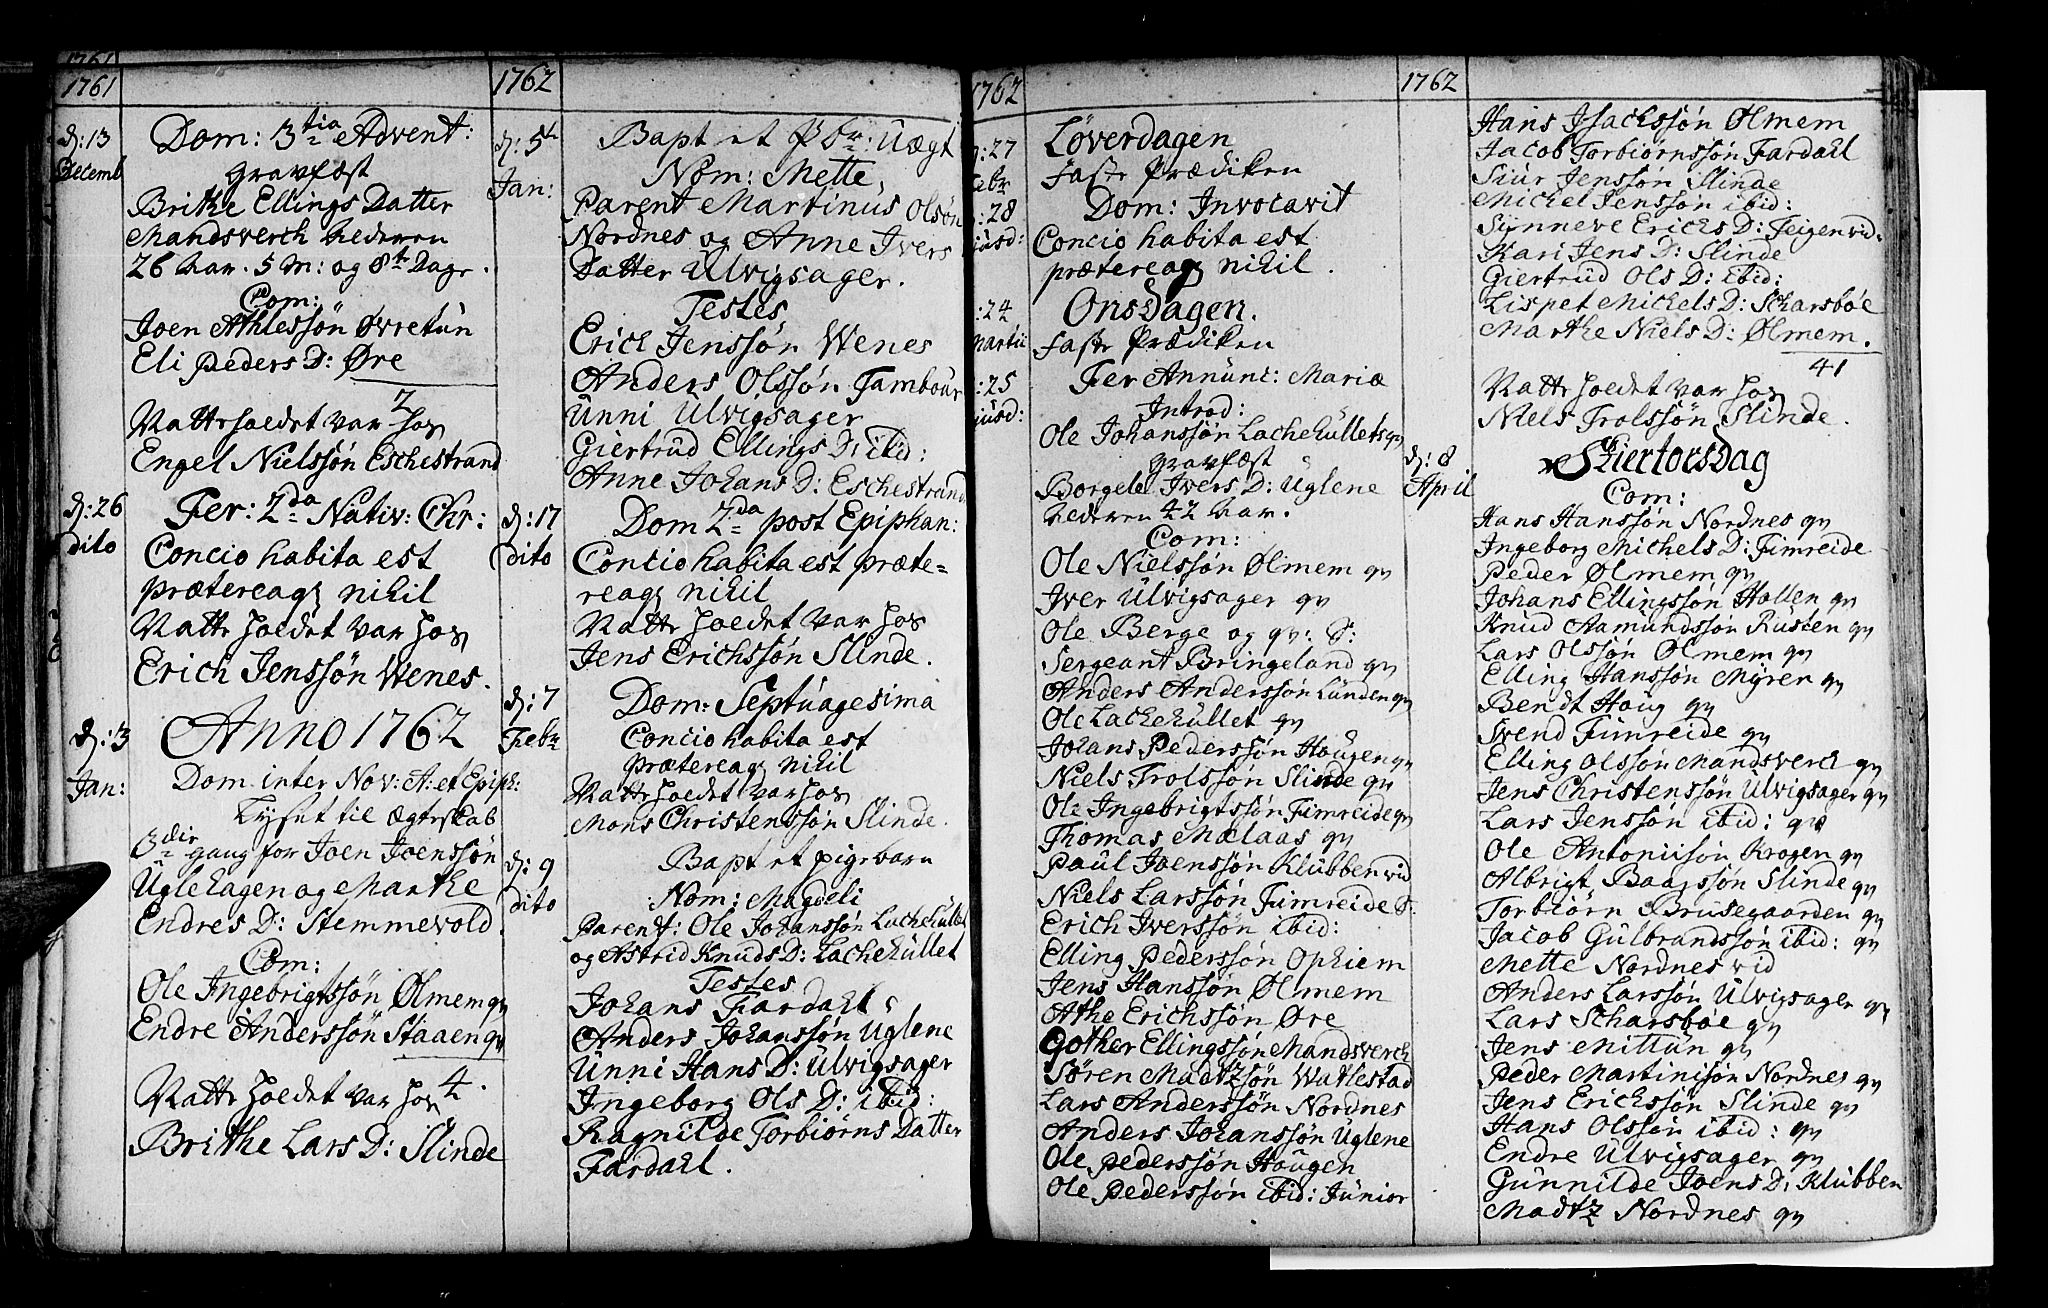 1761
1761
d: 13
Decemb
Dom: 3tia Advent:
gravfæst
Brithe Ellings Datter
Mandsverch hederen
26 aar. 5 M: og 8te Dage.
Com:
Joen Athlessøn Øvretun
Eli Peders D: Øre
2
Natte hoedet var hos
Engel Nielssøn Eschestrand
d: 26
dito
Fer: 2da Nativ: Chr:
Concio habita est
prætereaqz nihil
Natte hoedet var hos
Erich Jenssøn Wenes.
d: 3
Jan:
Anno 1762
Dom. inter Nov: A: et Epiph:
Lyset til Ægteskab
3die gang for Joen Joenssøn
Uglehagen og Marthe
Endres D: Stemmevold.
Com:
Ole Ingebrigtssøn Ølmem qv
Endre Anderssøn Staaen qv
4.
Natte hoedet var hos
Brithe Lars D: Slinde
1762
d: 5te
Jan:
Bapt et Pbr: Uægt
Nom: Mette,
Parent Martinus Olsøn
Nordnes og Anne Ivers
Datter Ulvigsager.
Testes
Erich Jenssøn Wenes
Anders Olssøn Tambour
Unni Ulvigsager
Giertrud Ellings D: ibid:
Anne Johans D: Eschestrand
d: 17
dito
Dom 2da post Epiphan:
Concio habita est præte=
reaqz nihil
Natte hoedet var hos
Jens Erichssøn Slinde.
d: 7
Febr
Dom: Septuagesima
Concio habita est
prætereaqz nihil
Natte hoedet var hos
Mons Christenssøn Slinde.
d: 9
dito
Bapt et pigebarn
Nom: Magdeli
Parent: Ole Johanssøn Lachehullet
og Astrid Knuds D: Lachehullet
Testes
Johans Fardahl
Anders Johanssøn Uglene
Unni Hans D: Ulvigsager
Ingeborg Ols D: ibid:
Ragnilde Torbiørns Datter
Fardahl.
1762
d: 27
Febr
Løverdagen
Faste Prædiken
: 28
jusd:
Dom: Invocavit
Concio habita est
prætereaqz nihil.
: 24
Martii
Onsdagen.
Faste Prædiken
: 25
jusd:
Fer Annunc: Mariæ
Introd:
Ole Johanssøn Lachehullets qv
gravfæst
Borgele Ivers D: Uglene
hederen 42 aar.
Com:
Ole Nielssøn Ølmem qv
Iver Ulvigsager qv
Ole Berge og qv: S:
Sergeant Bringeland qv
Anders Anderssøn Lunden qv
Ole Lachehullet qv
Johans Pederssøn Hougen qv
Niels Trolssøn Slinde qv
Ole Ingebrigtssøn Fimreide qv
Thomas Melaas qv
Paul Joenssøn Klubben vid
Niels Larssøn Fimreide S.
Erich Iverssøn ibid:
Elling Pederssøn Opheim
Jens Hanssøn Ølmem
Athe Erichssøn Øre
Gother Ellingssøn Mandsverch
Søren Madtzsøn Watlestad
Lars Anderssøn Nordnes
Anders Johanssøn Uglene
Ole Pederssøn Hougen
Ole Pederssøn ibid: Junior
1762
Hans Isachssøn Ølmem
Jacob Torbiørnssøn Fardahl
Siur Jenssøn Slinde
Michel Jenssøn ibid:
Synneve Erichs D: Feigen vid.
Kari Jens D: Slinde
Giertrud Ols D: ibid:
Lispet Michels D: Scharsbøe
Marthe Niels D: Ølmem.
41
Natte hoedet var hos
Niels Trolssøn Slinde.
d: 8
April
Skiertorsdag
Com:
Hans Hanssøn Nordnes qv
Ingeborg Michels D: Fimreide
Peder Ølmem qv
Johans Ellingssøn Hollen qv
Knud Aamundssøn Rusten qv
Lars Olssøn Ølmem qv
Elling Hanssøn Myren qv
Bendt Houg qv
Svend Fimreide qv
Elling Olssøn Mandsverch qv
Jens Christenssøn Ulvigsager qv
Lars Jenssøn ibid: qv
Ole Antoniisøn Krogen qv
Albrigt Baarssøn Slinde qv
Torbiørn Brusegaarden qv
Jacob Gulbrandssøn ibid: qv
Mette Nordnes vid
Anders Larssøn Ulvigsager qv
Lars Scharsbøe qv
Jens Mittun qv
Peder Martinisøn Nordnes qv
Jens Erichssøn Slinde qv
Hans Olssøn ibid: qv
Endre Ulvigsager qv
Gunnilde Joens D: Klubben
Madtz Nordnes qv